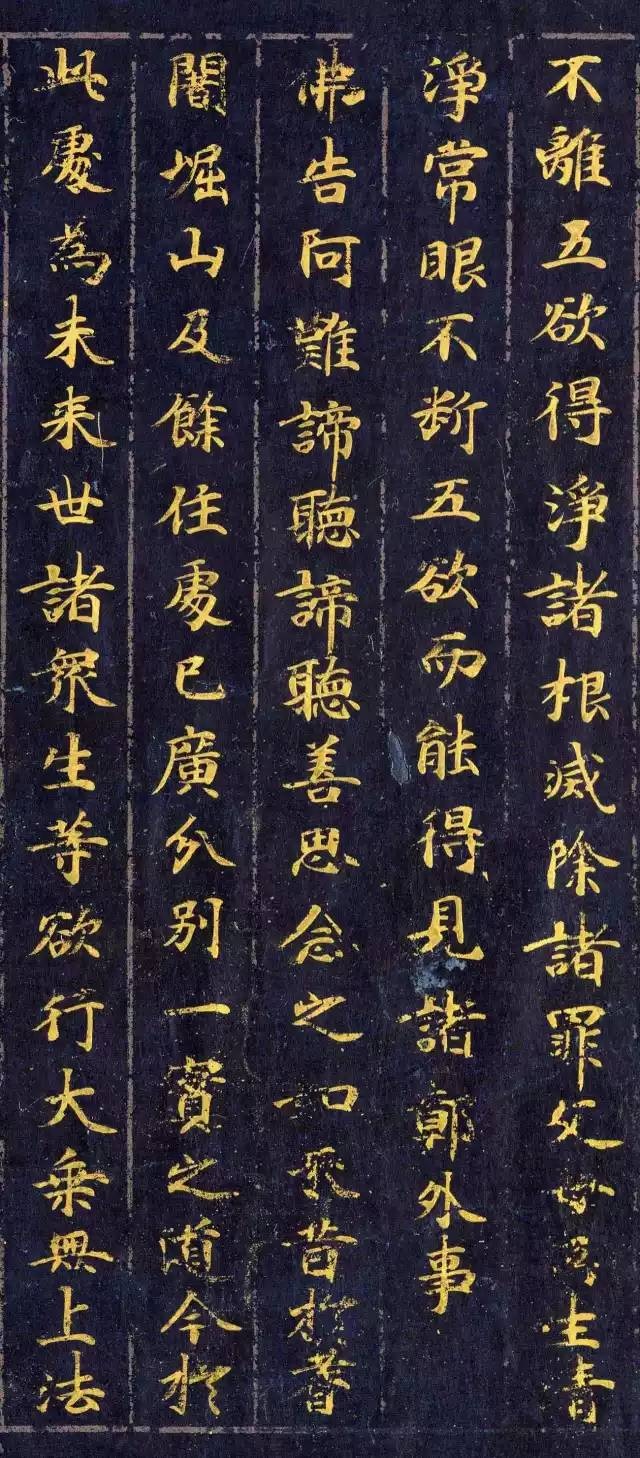 不離五欲得淨諸根滅除諸罪父母所生清
淨常眼不斷五欲而能得見諸鄣外事
佛告阿難諦聽諦聽善思念之如来昔於耆
闍堀山及餘住處已廣分別一實之道今於
此處為未来世諸衆生等欲行大乘無上法